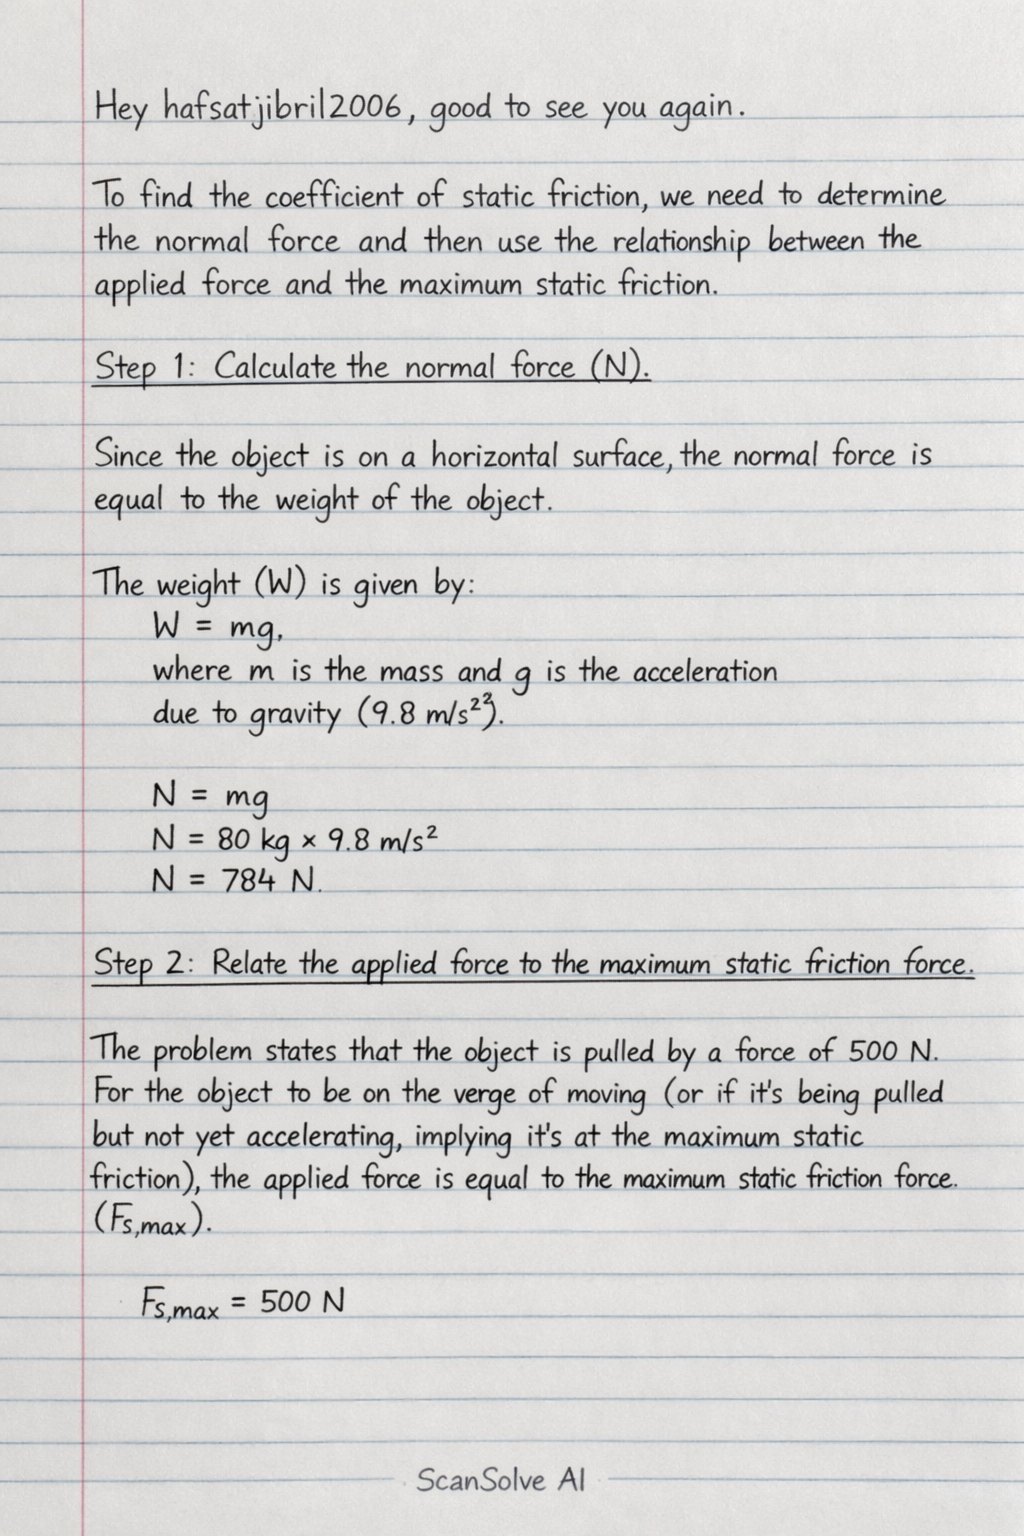 Hey hafsatjibril2006, good to see you again.
To find the coefficient of static friction, we need to determine
the normal force and then use the relationship between the
applied force and the maximum static friction.
Step 1: Calculate the normal force (N).
Since the object is on a horizontal surface, the normal force is
equal to the weight of the object.
The weight (W) is given by:
W = mg,
where m is the mass and g is the acceleration
due to gravity (9.8 m/s²²).
N = mg
N = 80 kg × 9.8 m/s²
N = 784 N.
Step 2: Relate the applied force to the maximum static friction force.
The problem states that the object is pulled by a force of 500 N.
For the object to be on the verge of moving (or if it's being pulled
but not yet accelerating, implying it's at the maximum static
friction), the applied force is equal to the maximum static friction force.
(Fs,max).
Fs,max = 500 N
ScanSolve AI